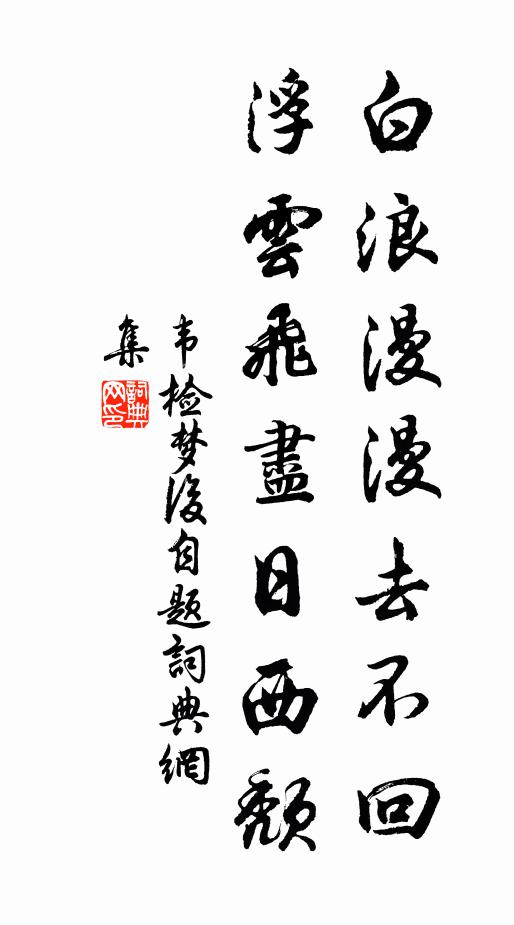 白浪漫漫去不回
浮雲飛盡日西頹
韦检梦後自题詞典網
集
詞典
网印